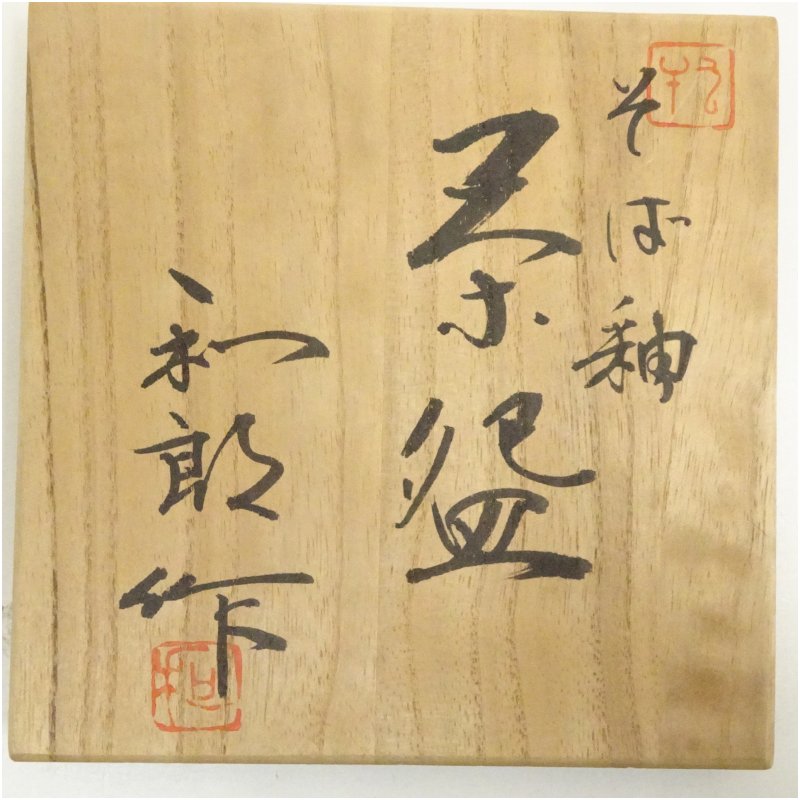 そば釉
茶盌
和郎作